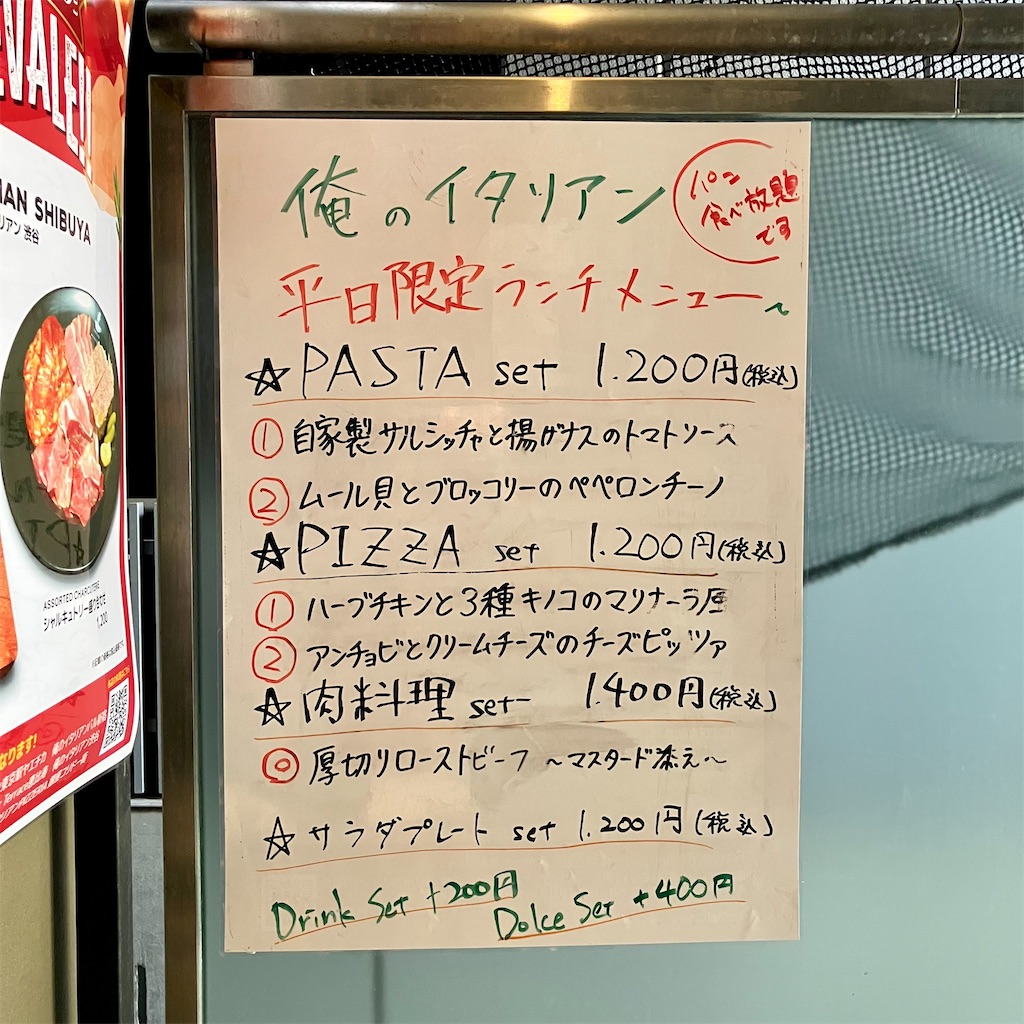 VALE!!
MAN SHIBUYA
リアン 渋谷
ASSORTED CHARCUTERIE
シャルキュトリー盛り合わせ
1,200
なります!
俺のイタリアン
パン
食べ放題
です
平日限定ランチメニュー〜
☆PASTA set 1.200円(税込)
① 自家製サルシッチャと揚ガナスのトマトソース
② ムール貝とブロッコリーのペペロンチーノ
☆PIZZA set 1.200円(税込)
① ハーブチキンと3種キノコのマリナーラ風
② アンチョビとクリームチーズのチーズピッツァ
☆肉料理 set 1.400円(税込)
◎ 厚切りローストビーフ 〜マスタード添え〜
☆サラダプレート set 1.200円(税込)
Drink Set +200円
Dolce Set +400円